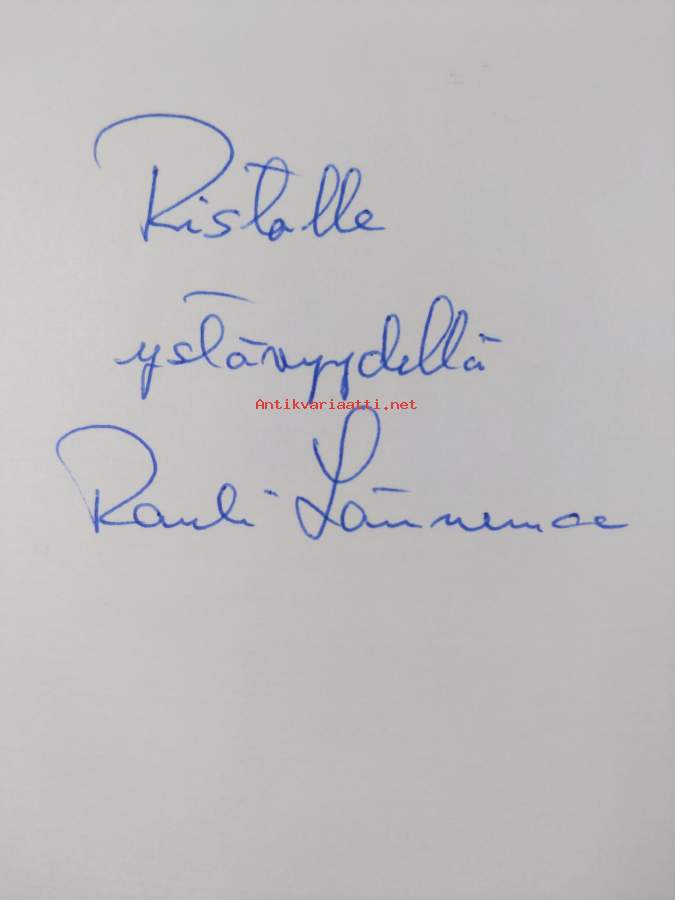 Ristolle
ystävyydellä
Antikvariaatti.net
Rauli Lännenmaa